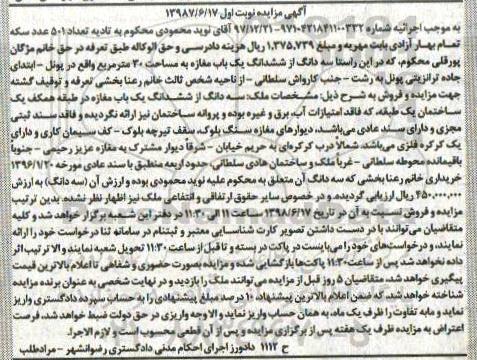 آگهی مزایده نوبت اول ۱۳۹۸/۶/۱۷
به موجب اجرائیه شماره ۹۷۱۰۴۲۱۸۴۱۱۰۰۳۳۲-۹۷/۱۲/۲۱ آقای نوید محمودی محکوم به تادیه تعداد ۵۰۱ عدد سکه
تمام بهار آزادی بابت مهریه و مبلغ ۱,۳۷۵,۷۳۹ ریال هزینه دادرسی و حق الوکاله طبق تعرفه در حق خانم مژگان
پورقلی محکوم، که در این راستا سه دانگ از ششدانگ یک باب مغازه به مساحت ۳۰ مترمربع واقع در پونل - ابتدای
جاده ترانزیتی پونل به رشت - جنب کارواش سلطانی - از ناحیه شخص ثالث خانم رعنا بخشی تعرفه و توقیف گشته
جهت مزایده و فروش به شرح ذیل: مشخصات ملک: سه دانگ از ششدانگ یک باب مغازه در طبقه همکف یک
ساختمان یک طبقه، که فاقد امتیازات آب، برق و غیره بوده و پروانه ساختمان نیز ارائه نگردیده و فاقد سند ثبتی
مجزی و دارای سند عادی می‌باشد، دیوارهای مغازه سنگ بلوک، سقف تیرچه بلوک - کف سیمان کاری و دارای
یک کرکره فلزی می‌باشد، شمالاً درب کرکره‌ای به حریم خیابان - شرقاً دیوار مشترک به مغازه عزیز رحیمی - جنوباً
باقیمانده محوطه سلطانی - غرباً ملک و ساختمان هادی سلطانی، حدود اربعه منطبق با سند عادی مورخه ۱۳۹۶/۱/۲۰
خریداری خانم رعنا بخشی که سه دانگ آن متعلق به محکوم علیه نوید محمودی بوده و ارزش آن (سه دانگ) به ارزش
۴۵۰,۰۰۰,۰۰۰ ریال ارزیابی گردیده، و در خصوص سایر حقوق ارتفاقی و انتفاعی ملک نیز اظهار نظر نشده، بدین ترتیب
مزایده و فروش نسبت به آن در تاریخ ۱۳۹۸/۶/۱۷ ساعت ۱۱ الی ۱۱:۳۰ در دفتر این شعبه برگزار خواهد شد و کلیه
متقاضیان می‌توانند با در دست داشتن تصویر کارت شناسایی معتبر و ثبتنام در سامانه ثنا درخواست خود را ارائه
نمایند، و درخواست‌های خود را می‌بایست در پاکت در بسته و تا قبل از ساعت ۱۱:۳۰ تحویل شعبه نمایند والا ترتیب اثر
داده نخواهد شد. پس از ساعت ۱۱:۳۰ پاکت‌ها بازگشایی شده و مزایده بصورت حضوری و شفاهی تا اعلام بالاترین قیمت
پیگیری خواهد شد، متقاضیان ۵ روز قبل از مزایده می‌توانند ملک را بازدید و در نهایت شخصی به عنوان برنده مزایده
شناخته خواهد شد، که ضمن اعلام بالاترین پیشنهاد، ۱۰ درصد مبلغ پیشنهادی را به حساب سپرده دادگستری واریز
نماید و مابه تفاوت را ظرف یک ماه، به همان حساب واریز نماید و الا وجه واریزی در حق دولت ضبط خواهد شد، فرصت
اعتراض به مزایده ظرف یک هفته پس از برگزاری مزایده و پس از آن قطعی محسوب است و لازم الاجرا.
ح ۱۱۱۲ دادورز اجرای احکام مدنی دادگستری رضوانشهر - مرادطلب